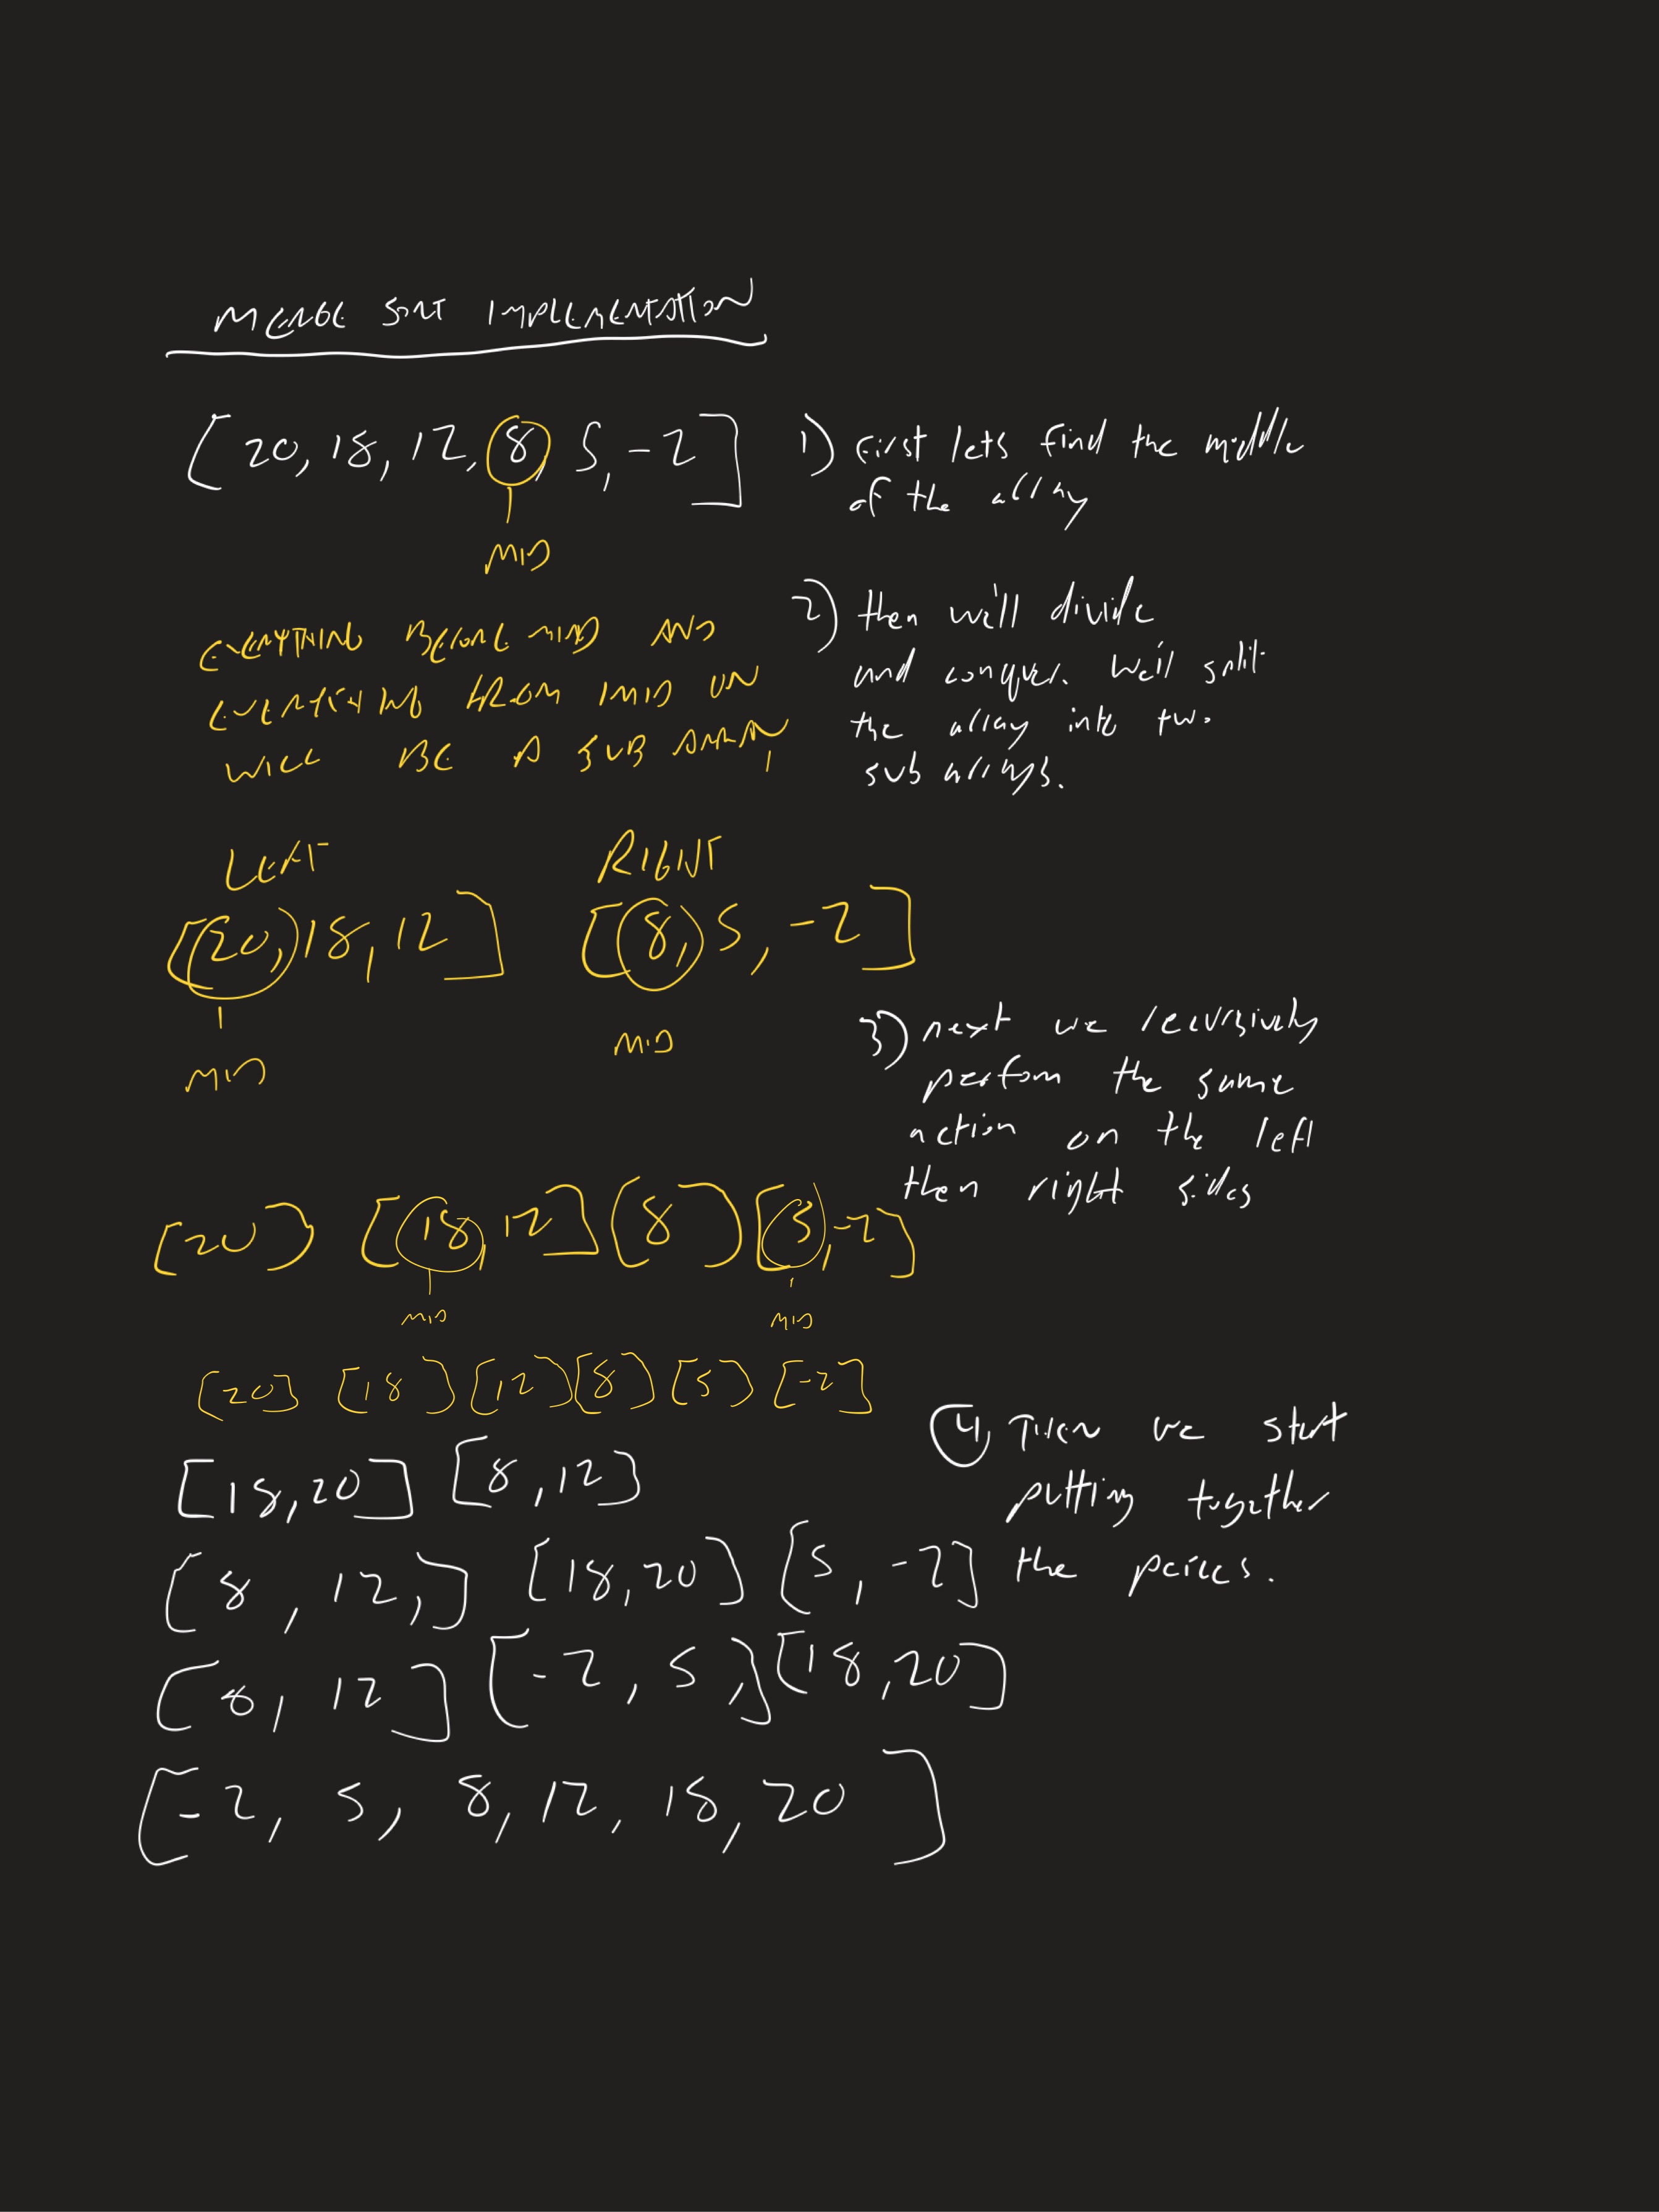 MERGE SORT IMPLEMENTATION
[20, 18, 12, 8, 5, -2]
MID
1) First lets find the middle
of the array
EVERYTHING BEFORE MID AND
EVERYTHING FROM MID ON
WILL BE A SUB ARRAY
2) then we'll divide
and conquer. we'll split
the array into two
sub arrays.
LEFT
RIGHT
[20, 18, 12] [8, 5, -2]
MID
MID
3) next we recursively
perform the same
action on the left
then right sides
[20] [18, 12] [8] [5, -2]
MID
MID
[20] [18] [12] [8] [5] [-2]
4) Then we start
putting together
the peices.
[18, 20] [8, 12]
[8, 12,] [18, 20] [5, -2]
[8, 12] [-2, 5,] [18, 20]
[-2, 5, 8, 12, 18, 20]